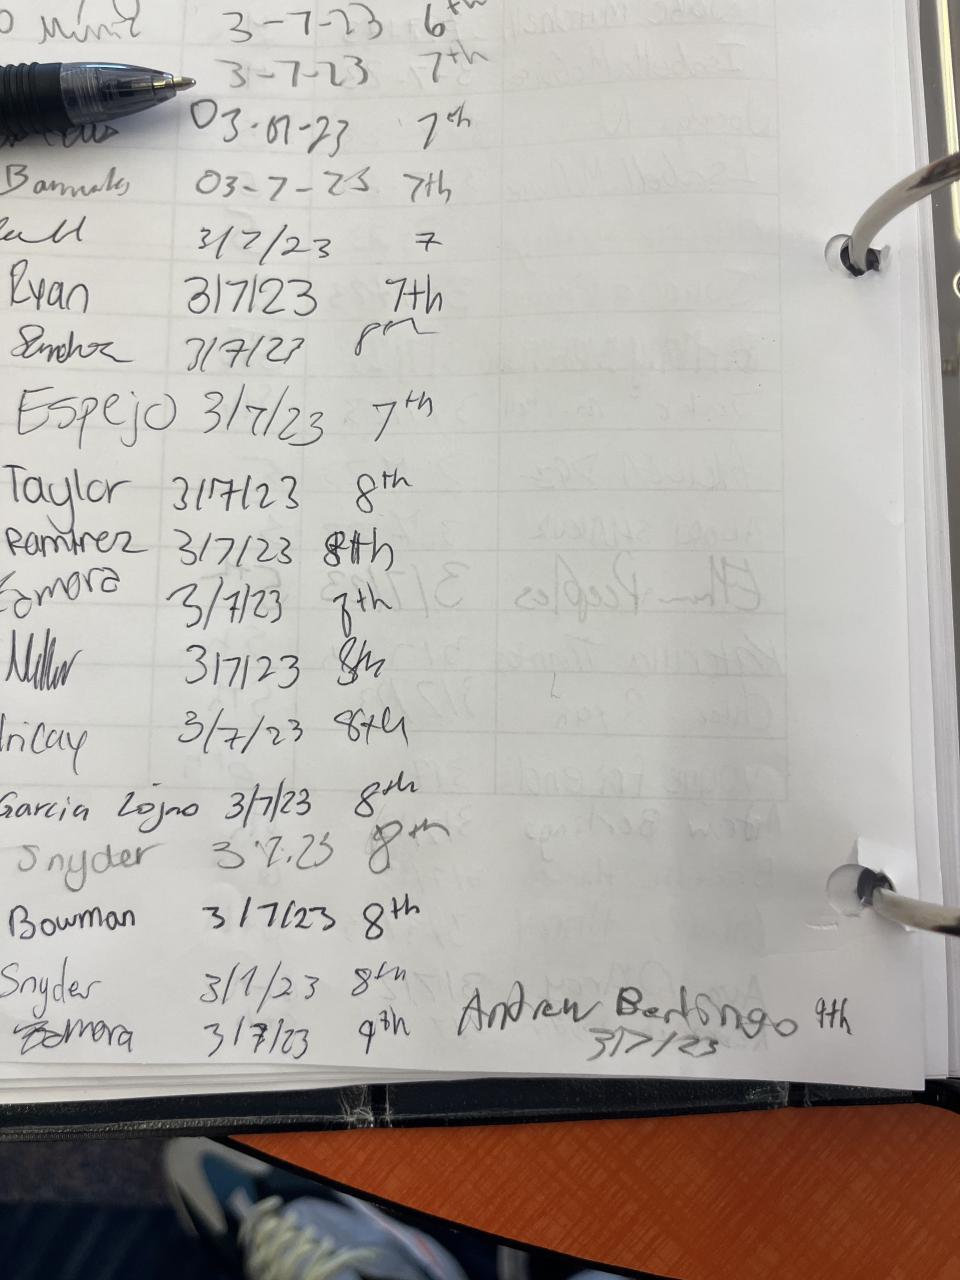 3-7-23 6th
3-7-23 7th
03-07-23 7th
03-7-23 7th
3/7/23 7
Ryan 3/7/23 7th
Sanchez 3/7/23
Espejo 3/7/23 7th
Taylor 3/7/23 8th
Ramirez 3/7/23 8th
Zamora 3/7/23 7th
Miller 3/7/23 8th
3/7/23 8th
Garcia 3/7/23 8th
Snyder 3.7.23 8th
Bowman 3/7/23 8th
Snyder 3/7/23 8th
Zamora 3/7/23 9th
Andrew Berlongo 9th
3/7/23